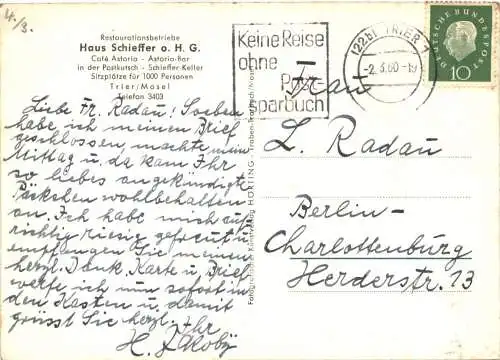 4./3.
Restaurationsbetriebe
Haus Schieffer o. H. G.
Café Astoria - Astoria-Bar
in der Postkutsch - Schieffer-Keller
Sitzplätze für 1000 Personen
Trier/Mosel
Telefon 3403
Liebe Fr. Radau! Soeben
habe ich meinen Brief
geschlossen, machte mein
Mittag u. da kam Ihr
so liebes angekündigte
Päckchen wohlbehalten
an. Ich habe mich auf-
richtig riesig gefreut u.
empfangen Sie meinen
herzl. Dank. Karte u. Brief
werfe ich nun sofort in
den Kasten u. damit
grüsst Sie herzl. Ihr
H. Jakoby
Keine Reise
ohne
Post
sparbuch
(22b) TRIER 1
-2.3.60-19
DEUTSCHE BUNDESPOST
10
Frau
L. Radau
Berlin-
Charlottenburg
Herderstr. 13